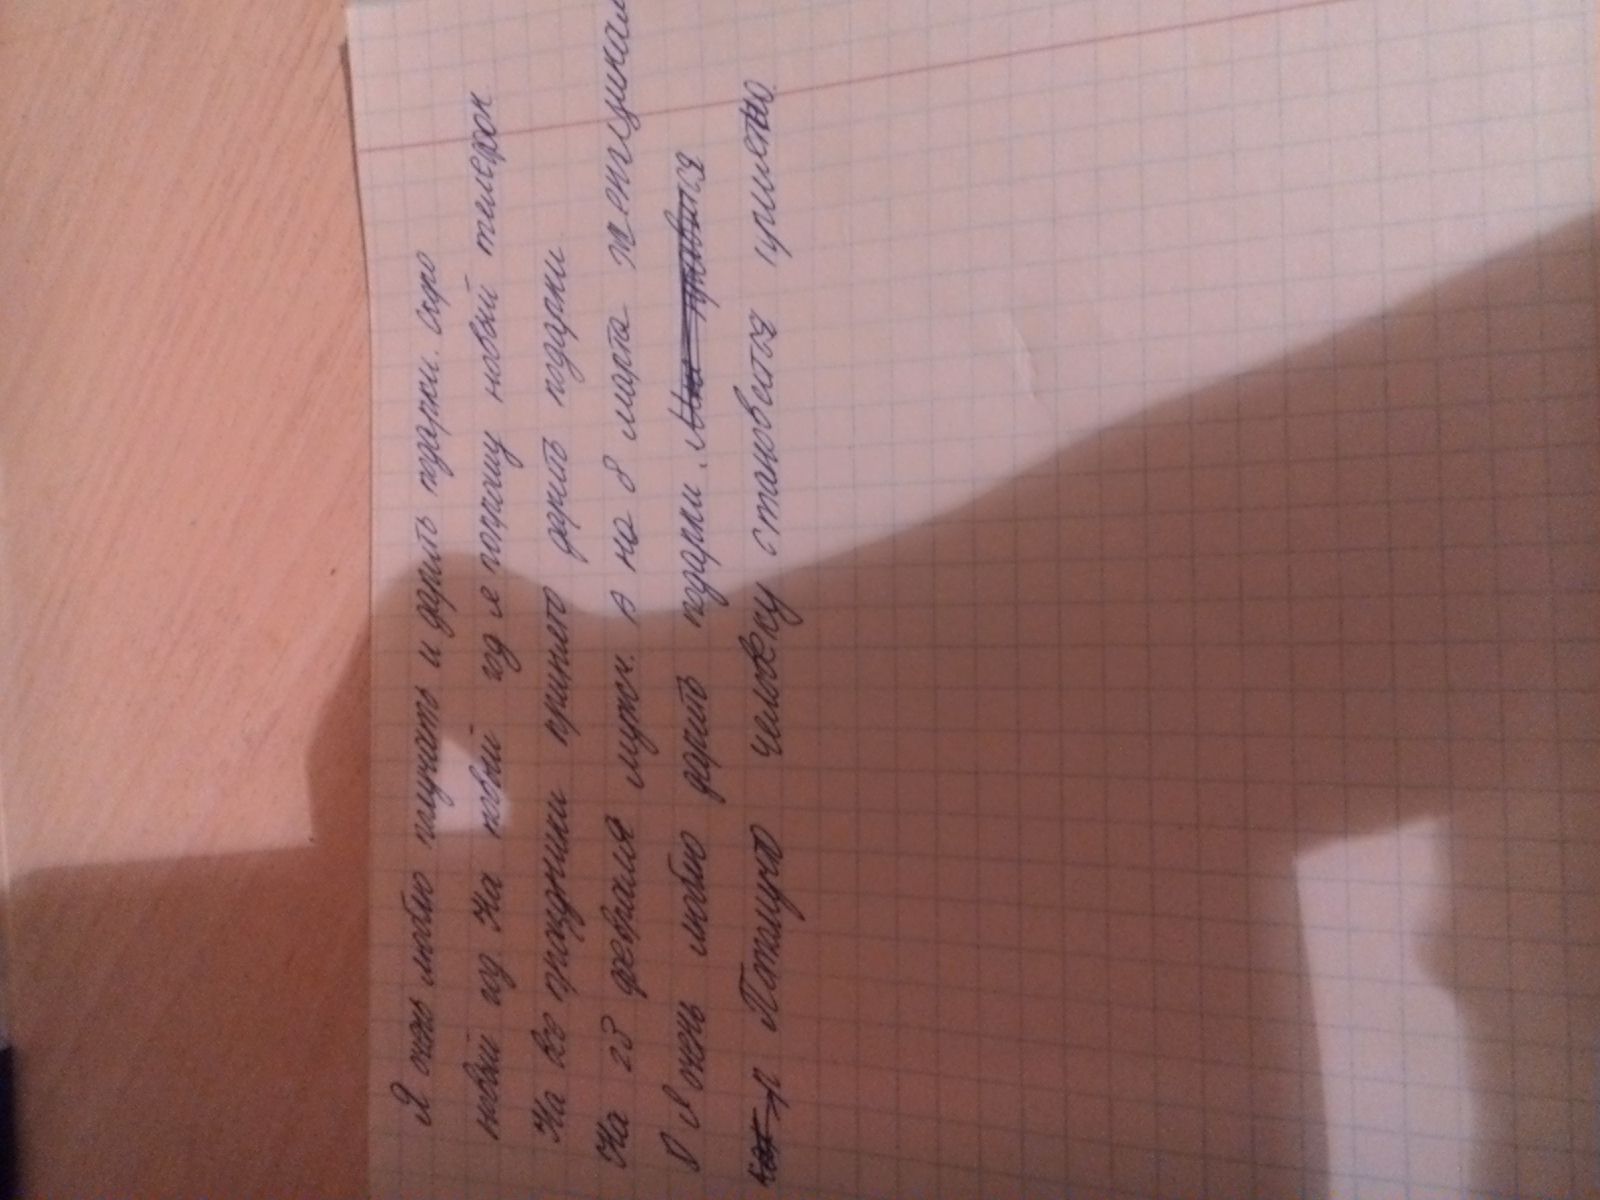 Я очень люблю получать и дарить подарки. Скоро
новый год. На новый год я попрошу новый телефон
На все праздники принято дарить подарки.
На 23 февраля мужч. А на 8 марта женщинам
Я очень люблю дарить подарки.
Потому что человеку становится приятно.